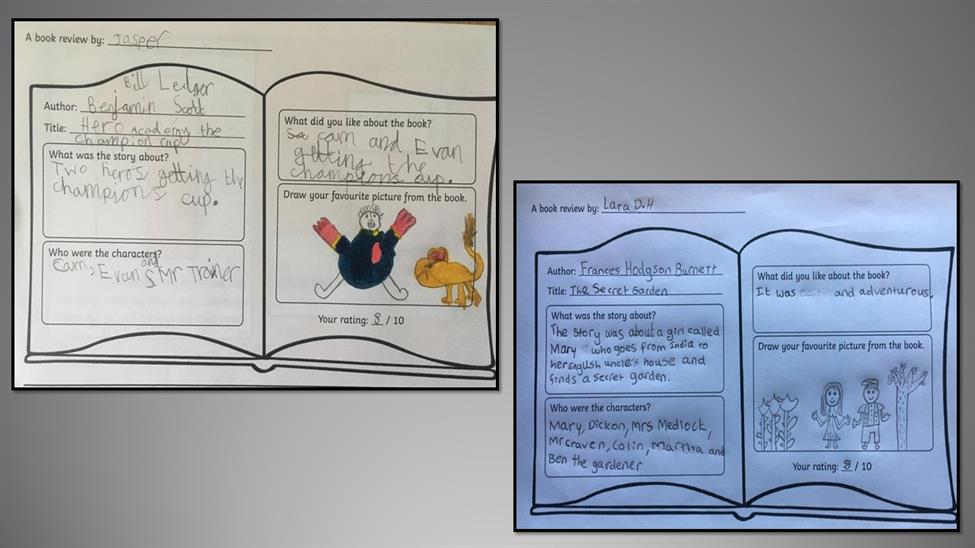 A book review by: Jasper
Bill Ledger
Author: Benjamin Scott
Title: Hero academy the
champion cup
What was the story about?
Two heros getting the
champions cup.
Who were the characters?
Cam, Evan and Mr Trainer
What did you like about the book?
cam and Evan
getting the
champions cup.
Draw your favourite picture from the book.
Your rating: 8 / 10
A book review by: Lara D.H
Author: Frances Hodgson Burnett
Title: The Secret Garden
What was the story about?
The story was about a girl called
Mary who goes from India to
her English uncle's house and
finds a secret garden.
Who were the characters?
Mary, Dickon, Mrs Medlock,
Mr craven, Colin, Martha and
Ben the gardener
What did you like about the book?
It was and adventurous.
Draw your favourite picture from the book.
Your rating: 8 / 10